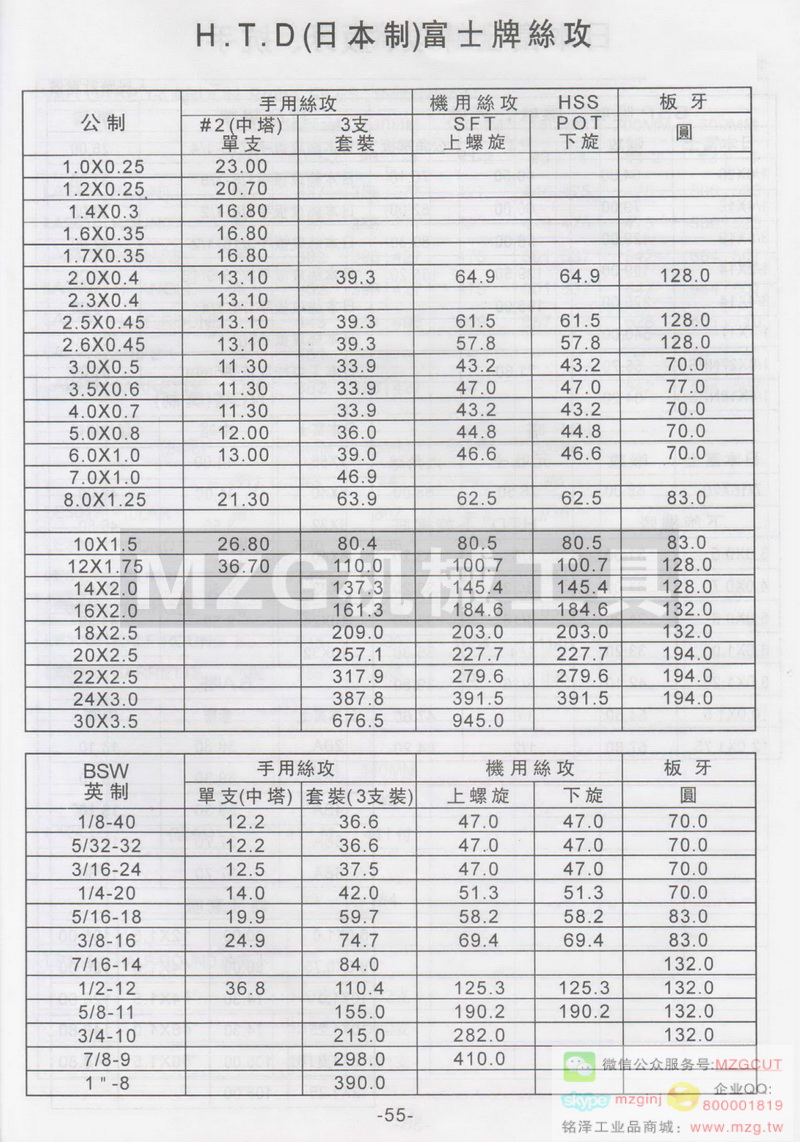 H.T.D(日本制)富士牌絲攻
公制 手用絲攻 機用絲攻 HSS 板牙
#2(中塔) 3支 SFT POT 圓
單支 套裝 上螺旋 下旋
1.0X0.25 23.00
1.2X0.25 20.70
1.4X0.3 16.80
1.6X0.35 16.80
1.7X0.35 16.80
2.0X0.4 13.10 39.3 64.9 64.9 128.0
2.3X0.4 13.10
2.5X0.45 13.10 39.3 61.5 61.5 128.0
2.6X0.45 13.10 39.3 57.8 57.8 128.0
3.0X0.5 11.30 33.9 43.2 43.2 70.0
3.5X0.6 11.30 33.9 47.0 47.0 77.0
4.0X0.7 11.30 33.9 43.2 43.2 70.0
5.0X0.8 12.00 36.0 44.8 44.8 70.0
6.0X1.0 13.00 39.0 46.6 46.6 70.0
7.0X1.0 46.9
8.0X1.25 21.30 63.9 62.5 62.5 83.0
10X1.5 26.80 80.4 80.5 80.5 83.0
12X1.75 36.70 110.0 100.7 100.7 128.0
14X2.0 137.3 145.4 145.4 128.0
MZG机械工具
16X2.0 161.3 184.6 184.6 132.0
18X2.5 209.0 203.0 203.0 132.0
20X2.5 257.1 227.7 227.7 194.0
22X2.5 317.9 279.6 279.6 194.0
24X3.0 387.8 391.5 391.5 194.0
30X3.5 676.5 945.0
BSW 手用絲攻 機用絲攻 板牙
英制 單支(中塔) 套裝(3支裝) 上螺旋 下旋 圓
1/8-40 12.2 36.6 47.0 47.0 70.0
5/32-32 12.2 36.6 47.0 47.0 70.0
3/16-24 12.5 37.5 47.0 47.0 70.0
1/4-20 14.0 42.0 51.3 51.3 70.0
5/16-18 19.9 59.7 58.2 58.2 83.0
3/8-16 24.9 74.7 69.4 69.4 83.0
7/16-14 84.0 132.0
1/2-12 36.8 110.4 125.3 125.3 132.0
5/8-11 155.0 190.2 190.2 132.0
3/4-10 215.0 282.0 132.0
7/8-9 298.0 410.0
1"-8 390.0
微信公众服务号:MZGCUT
skype mzginj 企业QQ: 800001819
铭泽工业品商城: www.mzg.tw
-55-